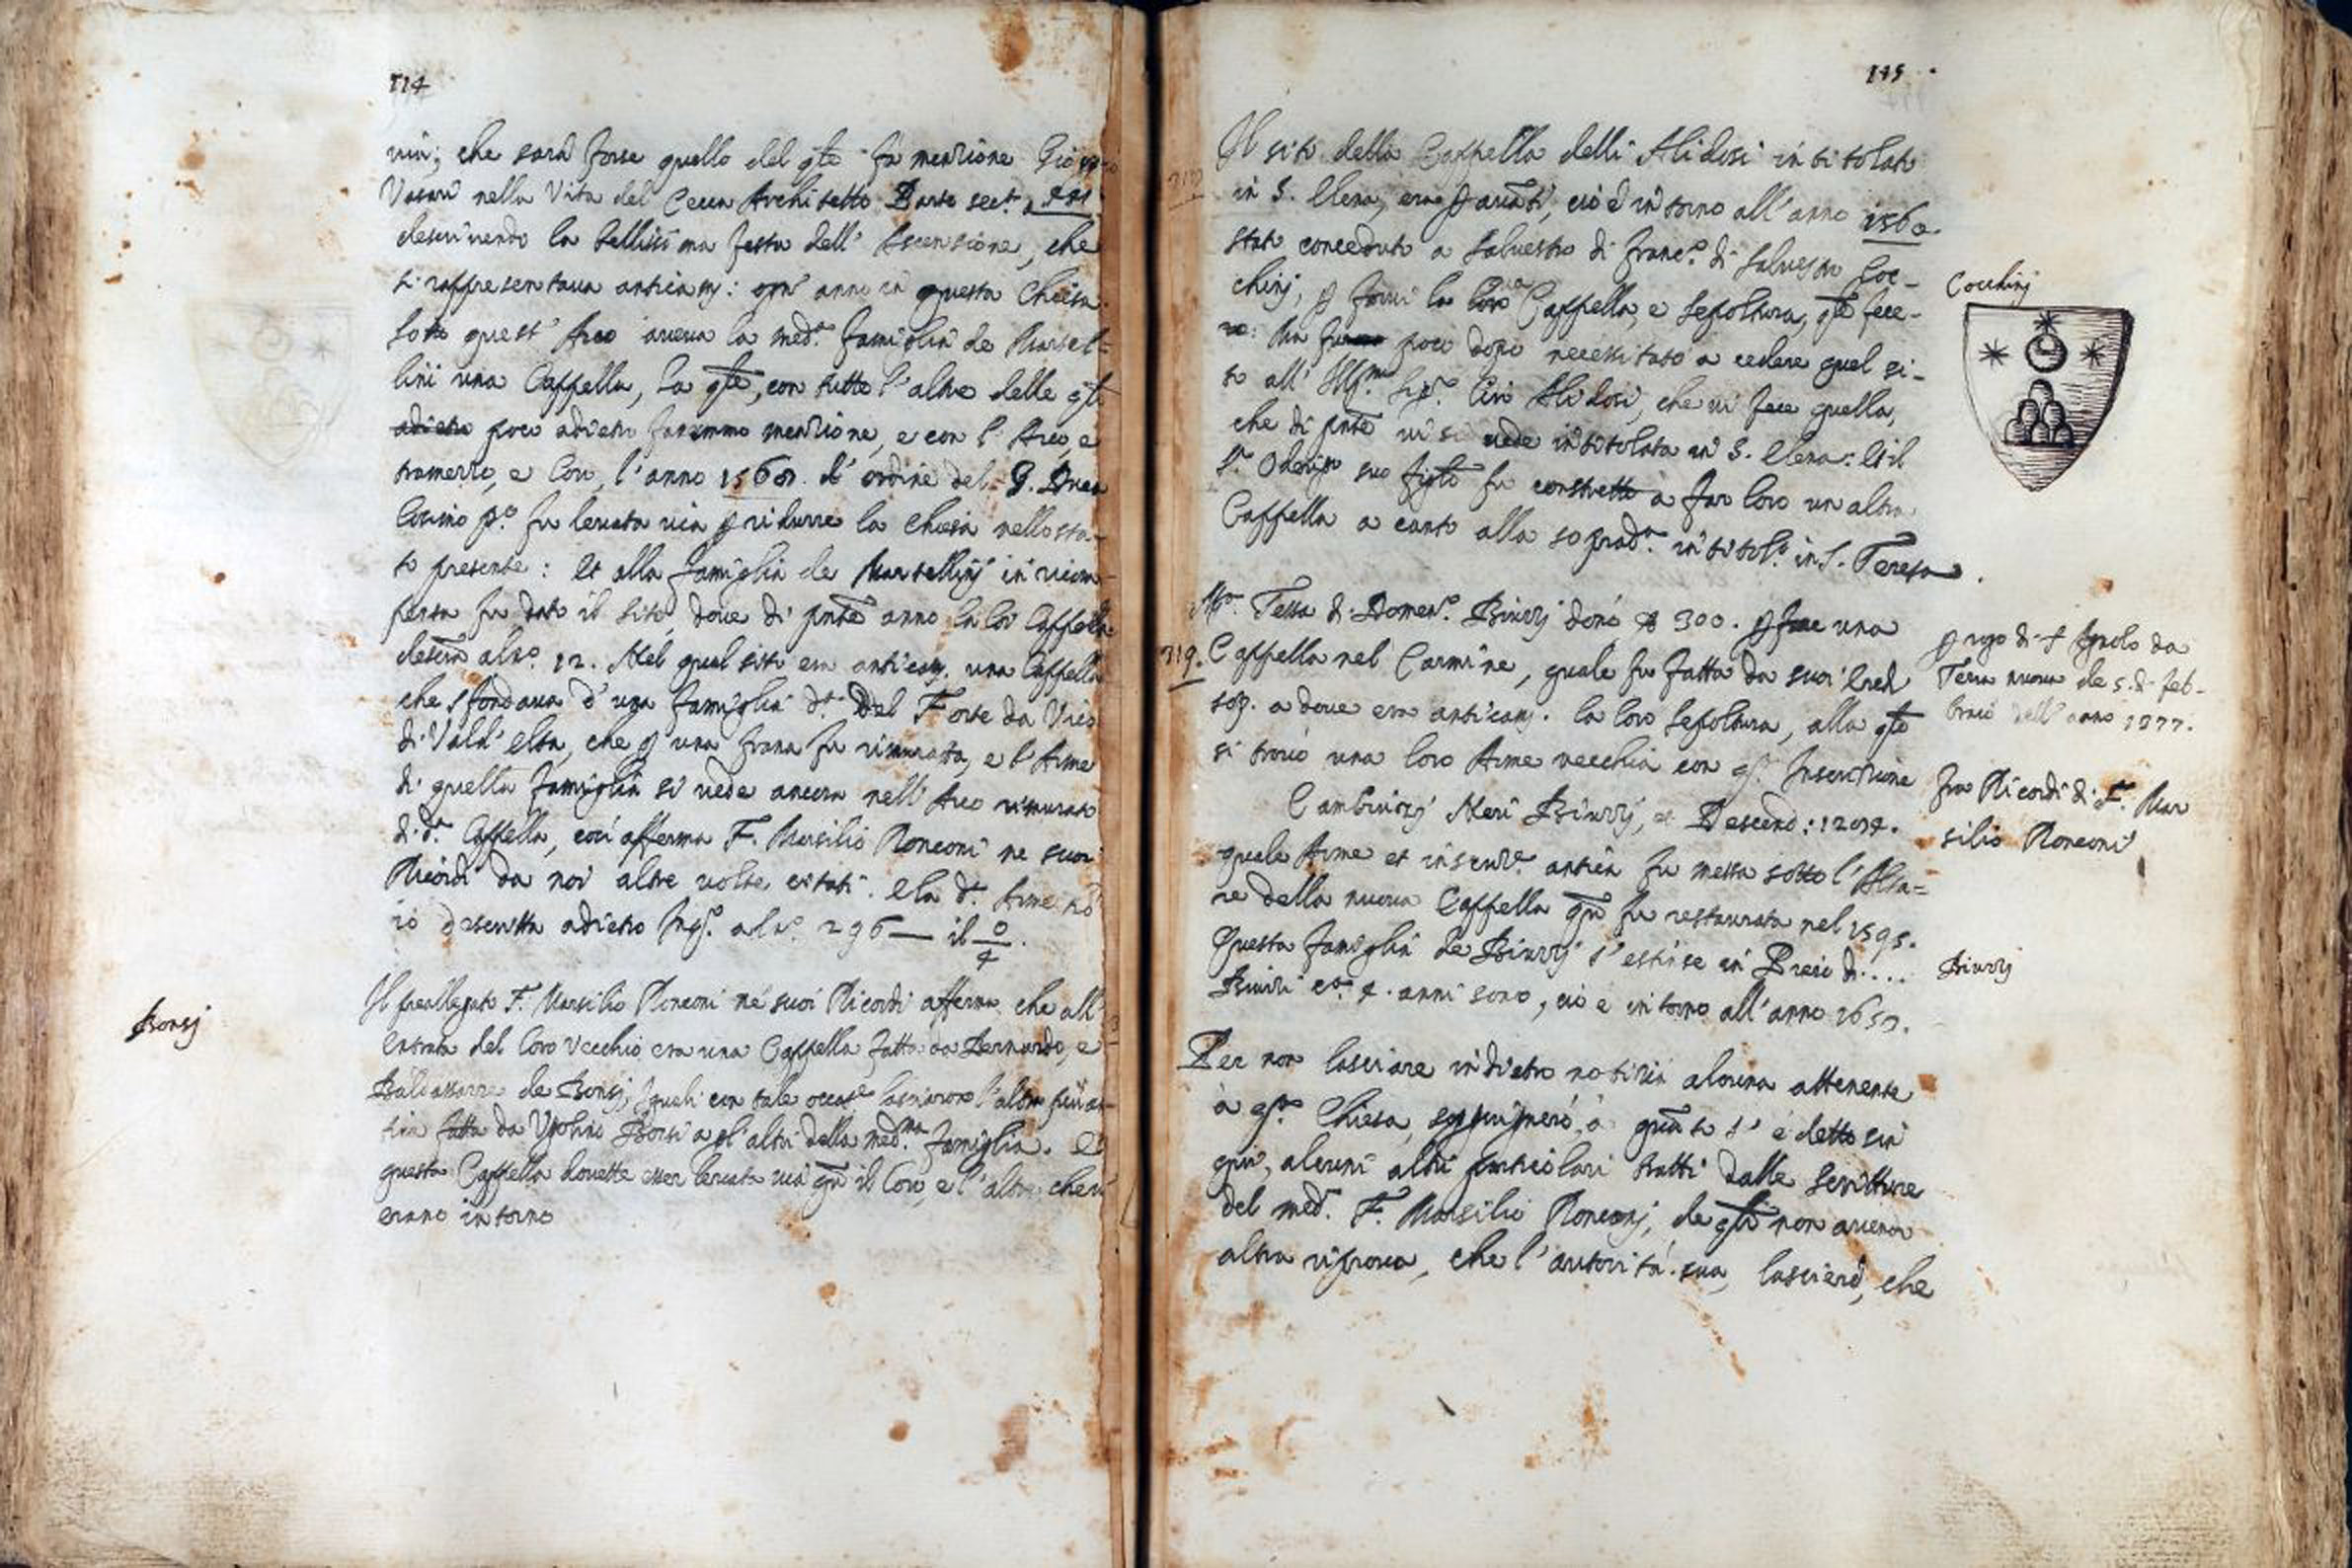 114
via; che sarà forse quello del qle fa menzione Giorgio
Vasari nella Vita del Cecca Architetto Parte sec.
descrivendo la bellissima festa dell' Ascensione, che
si rappresentava anticam: ogn' anno in questa Chiesa.
Sotto quest' Arco aveva la med.ª famiglia de Martel=
lini una Cappella, la qle, con tutte l'altre delle qli
adietro poco adietro faremmo menzione, e con l' Arco, e
tramezzo, e Coro, l'anno 1568. d' ordine del G. Duca
Cosimo p.º fu levata via p ridurre la Chiesa nello sta-
to presente: Et alla famiglia de Martellinj in ricom-
pensa fu dato il sito, dove di pnte anno la lor Cappella
descrª al nº. 12. Nel qual sito era anticam. una Cappella
che sfondava d' una famiglia dª. Del Forte da Vico
di Vald' elsa, che p una frana fu rimurata, e l' Arme
di quella famiglia si vede ancora nell' Arco rimurato
di dª. Cappella, così afferma F. Marsilio Ronconi ne suoi
Ricordi da noi altre volte citati. e la dª. Arme hò
io descritta adietro al nº. 296 — il 0/4.
Il preallegato F. Marsilio Ronconi ne' suoi Ricordi afferma, che all'
Bonsj
entrata del Coro Vecchio era una Cappella fatta da Bernardo, e
Baldassarre de Bonsj, i quali con tale occase lasciaron l'altra più an-
tica fatta da Ugolino Bonsi a gl'altri della med.ma famiglia. E
questa Cappella dovette esser levata via qn il Coro, e l'altre che vi
erano intorno
115
Il sito della Cappella delli Alidosi intitolata
in S. Elena, era p avanti, cioè intorno all'anno 1560.
stato conceduto a Salvestro di Franc.º di Salvestro Coc-
Cocchinj
chinj, p farvi la loro Cappella, e Sepoltura, qle fece-
ro: Ma poco dopo necessitato a cedere quel si-
to all' Ill.mo Sig.r Ciro Alidosi, che vi fece quella,
che di pnte vi si vede intitolata in S. Elena: Et il
S.r Oderigo suo figlio fu constretto a far loro un altra
Cappella a canto alla soprad.ª intitol.ª in S. Teresa.
Mª. Tessa di Domen.º Biuzzj donò 300. p fare una
219. Cappella nel Carmine, quale fu fatta da suoi Eredi
p rogo di S Agnolo da
Terra nuova de 5. di feb-
braio dell' anno 1377.
sop. a dove era anticam. la loro Sepoltura, alla qle
si trovò una loro Arme vecchia con qª. Inscrizione
Cambiozzj Neri Biuzzj, et Descend: 1294.
fra Ricordi di F. Mar
silio Ronconi
quale Arme et inscriz.e antica fu messa sotto l'Alta=
re della nuova Cappella qn fu restaurata nel 1595.
Questa famiglia de Biuzzj s' estinse in Preie di....
Biuzzj
Biuzzi c.ª 4. anni sono, cio è intorno all'anno 1657.
Per non lasciare indietro notizia alcuna attenente
à qª. Chiesa, soggiugnerò, à quanto s' è detto sin
qui, alcuni altri particolari tratti dalle scritture
del med. F. Marsilio Ronconj, de qli non avendo
altra riprova, che l' autorità sua, lascierò, che